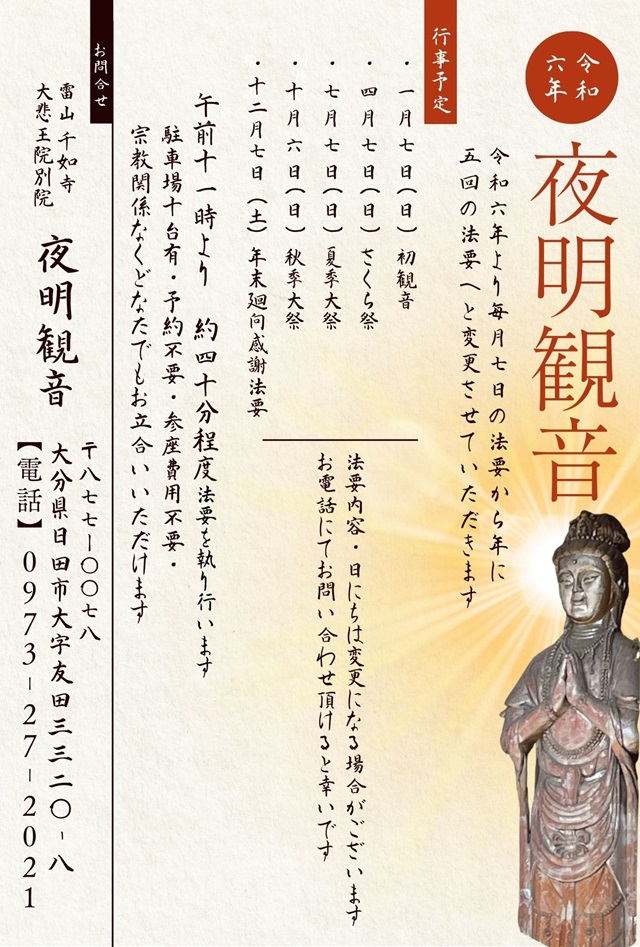 令和
六年
夜明観音
令和六年より毎月七日の法要から年に
五回の法要へと変更させていただきます
行事予定
・一月七日（日）初観音
・四月七日（日）さくら祭
・七月七日（日）夏季大祭
・十月六日（日）秋季大祭
・十二月七日（土）年末廻向感謝法要
法要内容・日にちは変更になる場合がございます
お電話にてお問い合わせ頂けると幸いです
午前十一時より　約四十分程度法要を執り行います
駐車場十台有・予約不要・参座費用不要・
宗教関係なくどなたでもお立合いいただけます
お問合せ
雷山千如寺
大悲王院別院
夜明観音
〒八七七ー〇〇七八
大分県日田市大字友田三三二〇-八
【電話】0973-27-2021